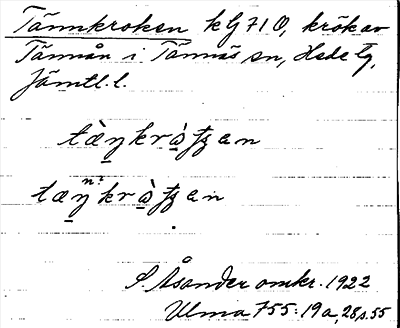 Tännkroken kG 71 O, krök av
Tännån i Tännäs sn, Hede tg,
Jämtl. l.
tæ̀ŋkrɷ̀ʈʂen
tæŋkrɷ̀ʈʂen
S. Åsander omkr. 1922
Ulma 755: 19a, 28 s. 55